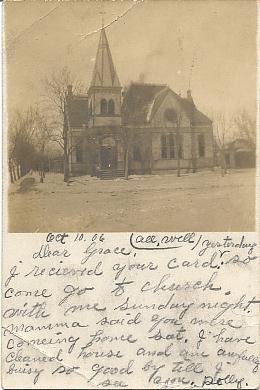 Oct 10. 06 (all, well)
Dear Grace, yesterday
I recieved your card. so
come go to church.
with me sunday night.
mamma said you were
comeing home sat. I have
cleaned house and am awfully
busy so good by till I
see you. Dolly.